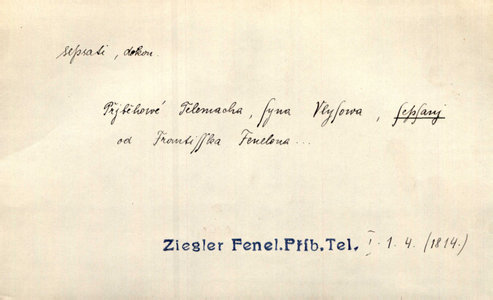 sepsati, dokon.
Přjběhowé Telemacha, syna Vlysowa, sepsanj
od Frantisska Fenelona...
Ziegler Fenel.Příb.Tel. I. 1. 4. (1814.)